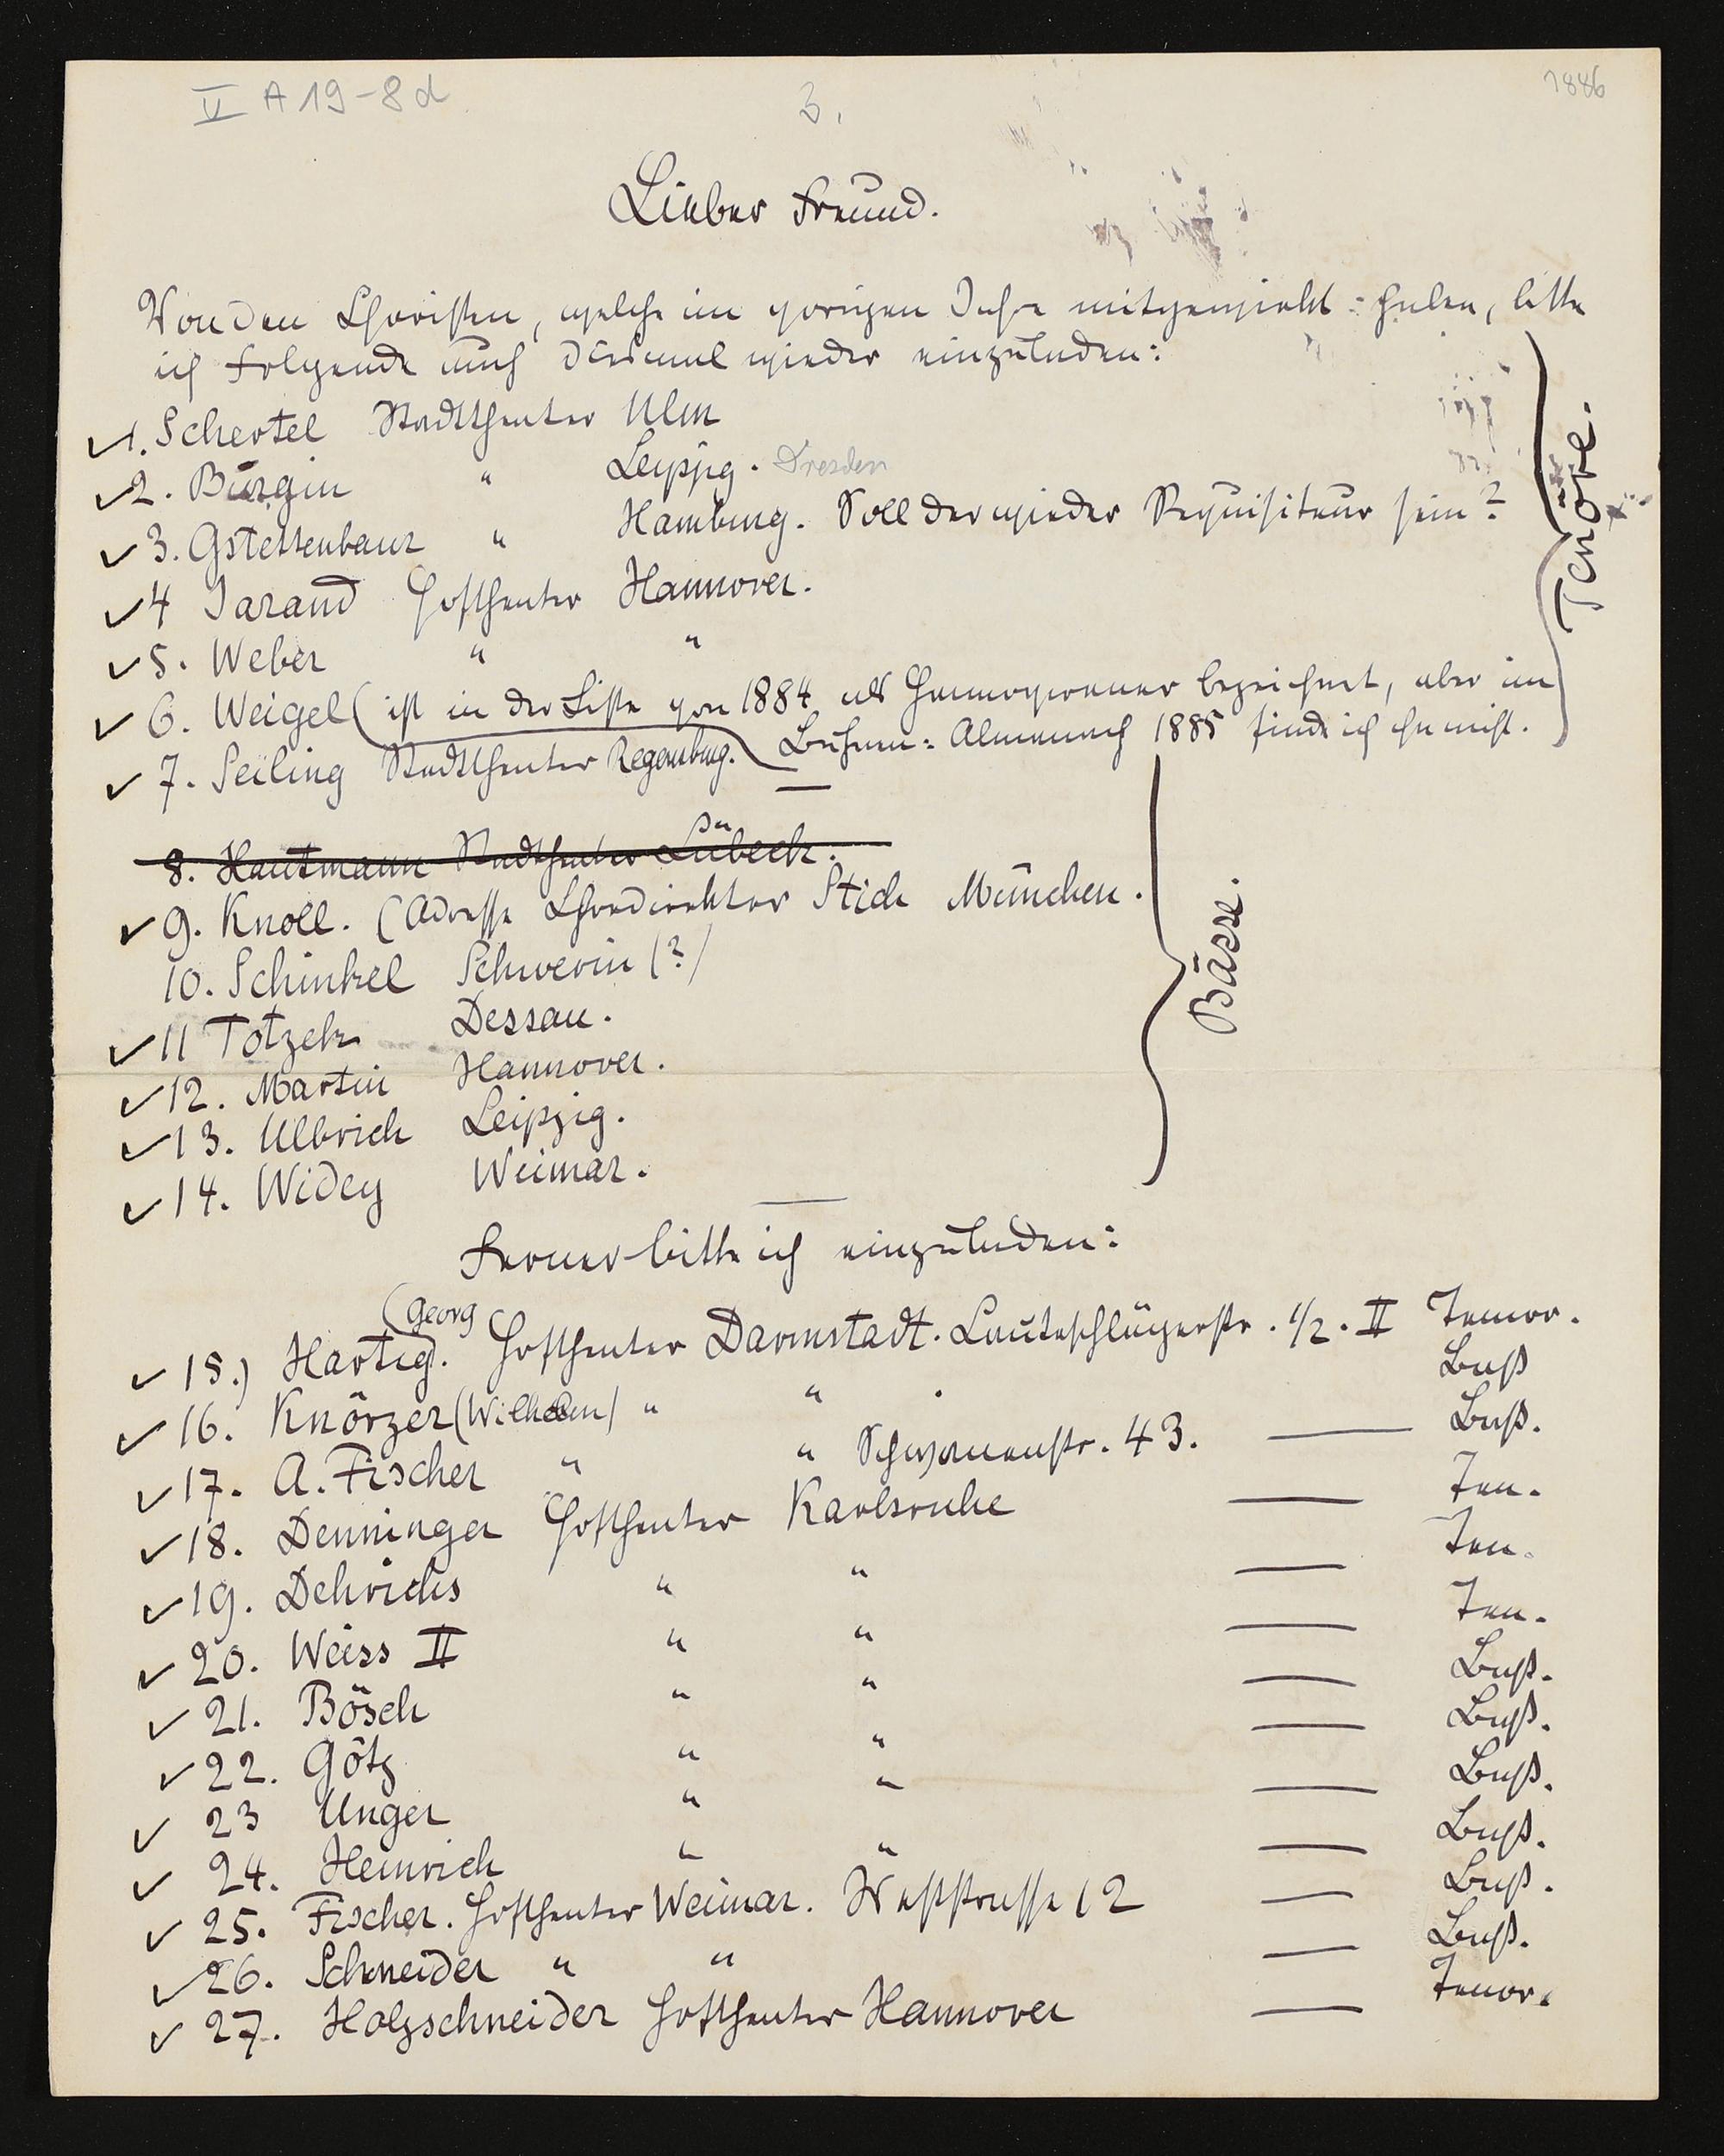 V A 19-8d
3.
1886
Lieber Freund.
Von den Choristen, welche im vorigen Jahre mitgewirkt haben, bitte
ich folgende auch diesmal wieder einzuladen:
1. Schertel Stadttheater Ulm
2. Bürgin " Leipzig. Dresden
3. Gstettenbaur " Hamburg. Soll der wieder Requisiteur sein?
4 Jarand Hoftheater Hannover.
5. Weber " "
6. Weigel (ist in der Liste von 1884 als Hannoveraner bezeichnet, aber im
Bühnen-Almanach 1885 finde ich ihn nicht.
7. Seiling Stadttheater Regensburg.
Tenöre.
8. Hautmann Stadttheater Lübeck.
9. Knoll. (Adresse Chordirektor Stich München.
10. Schinkel Schwerin (?)
11 Totzek Dessau.
12. Martin Hannover.
13. Ulbrich Leipzig.
14. Widey Weimar.
Bässe.
Ferner bitte ich einzuladen:
15.) Hartig. (Georg) Hoftheater Darmstadt. Lauteschlägerstr. 1/2. II Tenor.
16. Knörzer (Wilhelm) " " Baß
17. A. Fischer " " Schwanenstr. 43. — Baß.
18. Denninger Hoftheater Karlsruhe — Ten.
19. Dehrichs " " — Ten.
20. Weiss II " " — Ten.
21. Bösch " " — Baß.
22. Götz " " — Baß.
23 Unger " " — Baß.
24. Heinrich " " — Baß.
25. Fischer. Hoftheater Weimar. Weststrasse 12 — Baß.
26. Schneider " " — Baß.
27. Holzschneider Hoftheater Hannover — Tenor.